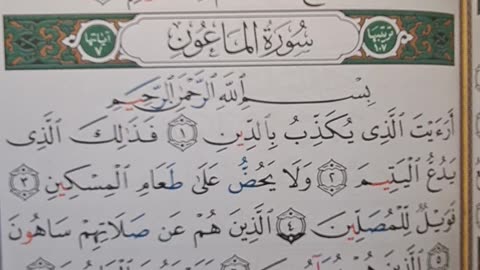 ترتيبها ١٠٧ سُورَةُ المَاعُونِ آياتها ٧
بِسْمِ اللَّهِ الرَّحْمَٰنِ الرَّحِيمِ
أَرَءَيْتَ الَّذِى يُكَذِّبُ بِالدِّينِ ١ فَذَٰلِكَ الَّذِى
يَدُعُّ الْيَتِيمَ ٢ وَلَا يَحُضُّ عَلَىٰ طَعَامِ الْمِسْكِينِ ٣
فَوَيْلٌ لِّلْمُصَلِّينَ ٤ الَّذِينَ هُمْ عَن صَلَاتِهِمْ سَاهُونَ
٥ الَّذِينَ هُمْ